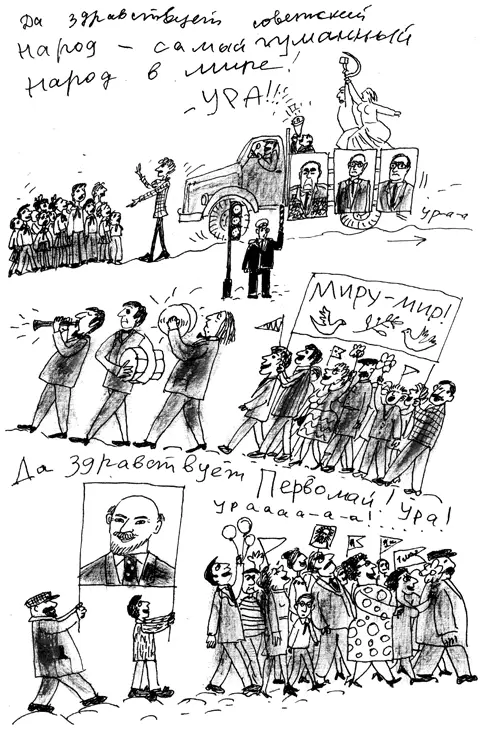 Да здравствует советский
народ – самый гуманный
народ в мире!
– УРА!!!
ур-а-а
МИРУ-МИР!
Да здравствует Первомай! Ура!
ураааа-а-а!......